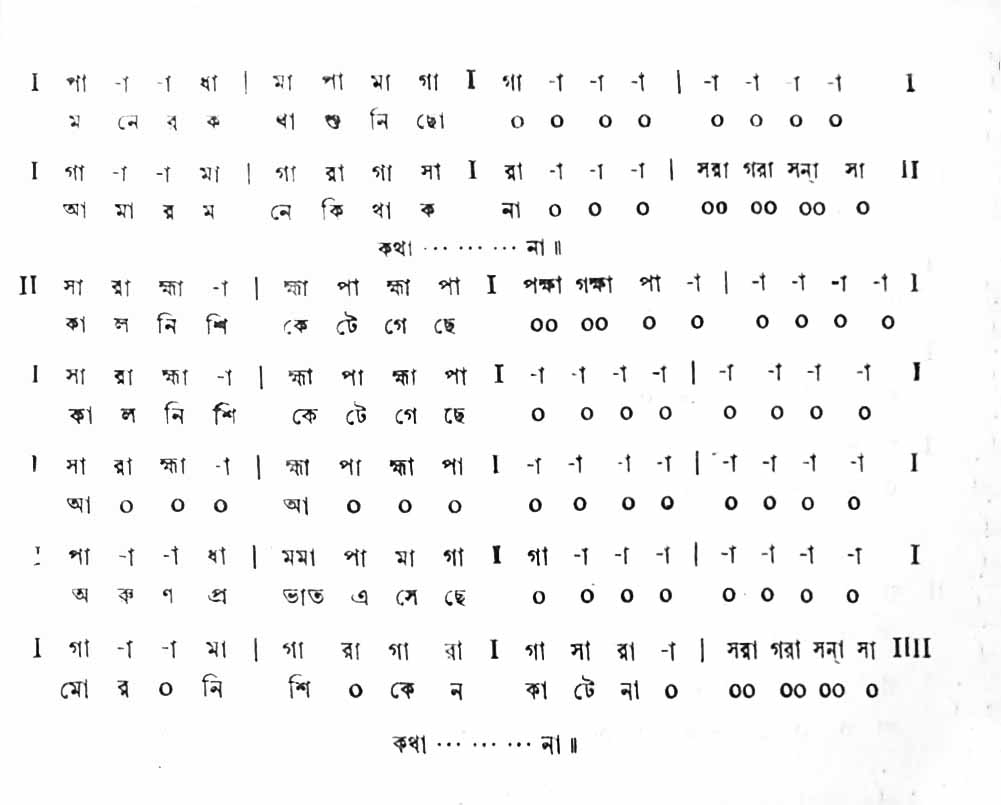 I পা -া -া ধা | মা পা মা গা I গা -া -া -া | -া -া -া -া I
ম নে র্ ক থা শু নি ছো o o o o o o o o
I গা -া -া মা | গা রা গা সা I রা -া -া -া | সরা গরা সন্া সা II
আ মা র ম নে কি থা ক না o o o oo oo oo o
কথা ⋯ ⋯ ⋯ না॥
II সা রা হ্মা -া | হ্মা পা হ্মা পা I পহ্মা গহ্মা পা -া | -া -া -া -া I
কা ল নি শি কে টে গে ছে oo oo o o o o o o
I সা রা হ্মা -া | হ্মা পা হ্মা পা I -া -া -া -া | -া -া -া -া I
কা ল নি শি কে টে গে ছে o o o o o o o o
I সা রা হ্মা -া | হ্মা পা হ্মা পা I -া -া -া -া | -া -া -া -া I
আ o o o আ o o o o o o o o o o o
I পা -া -া ধা | মমা পা মা গা I গা -া -া -া | -া -া -া -া I
অ রু ণ প্র ভাত এ সে ছে o o o o o o o o
I গা -া -া মা | গা রা গা রা I গা সা রা -া | সরা গরা সন্া সা IIII
মো র o নি শি o কে ন কা টে না o oo oo oo o
কথা ⋯ ⋯ ⋯ না॥